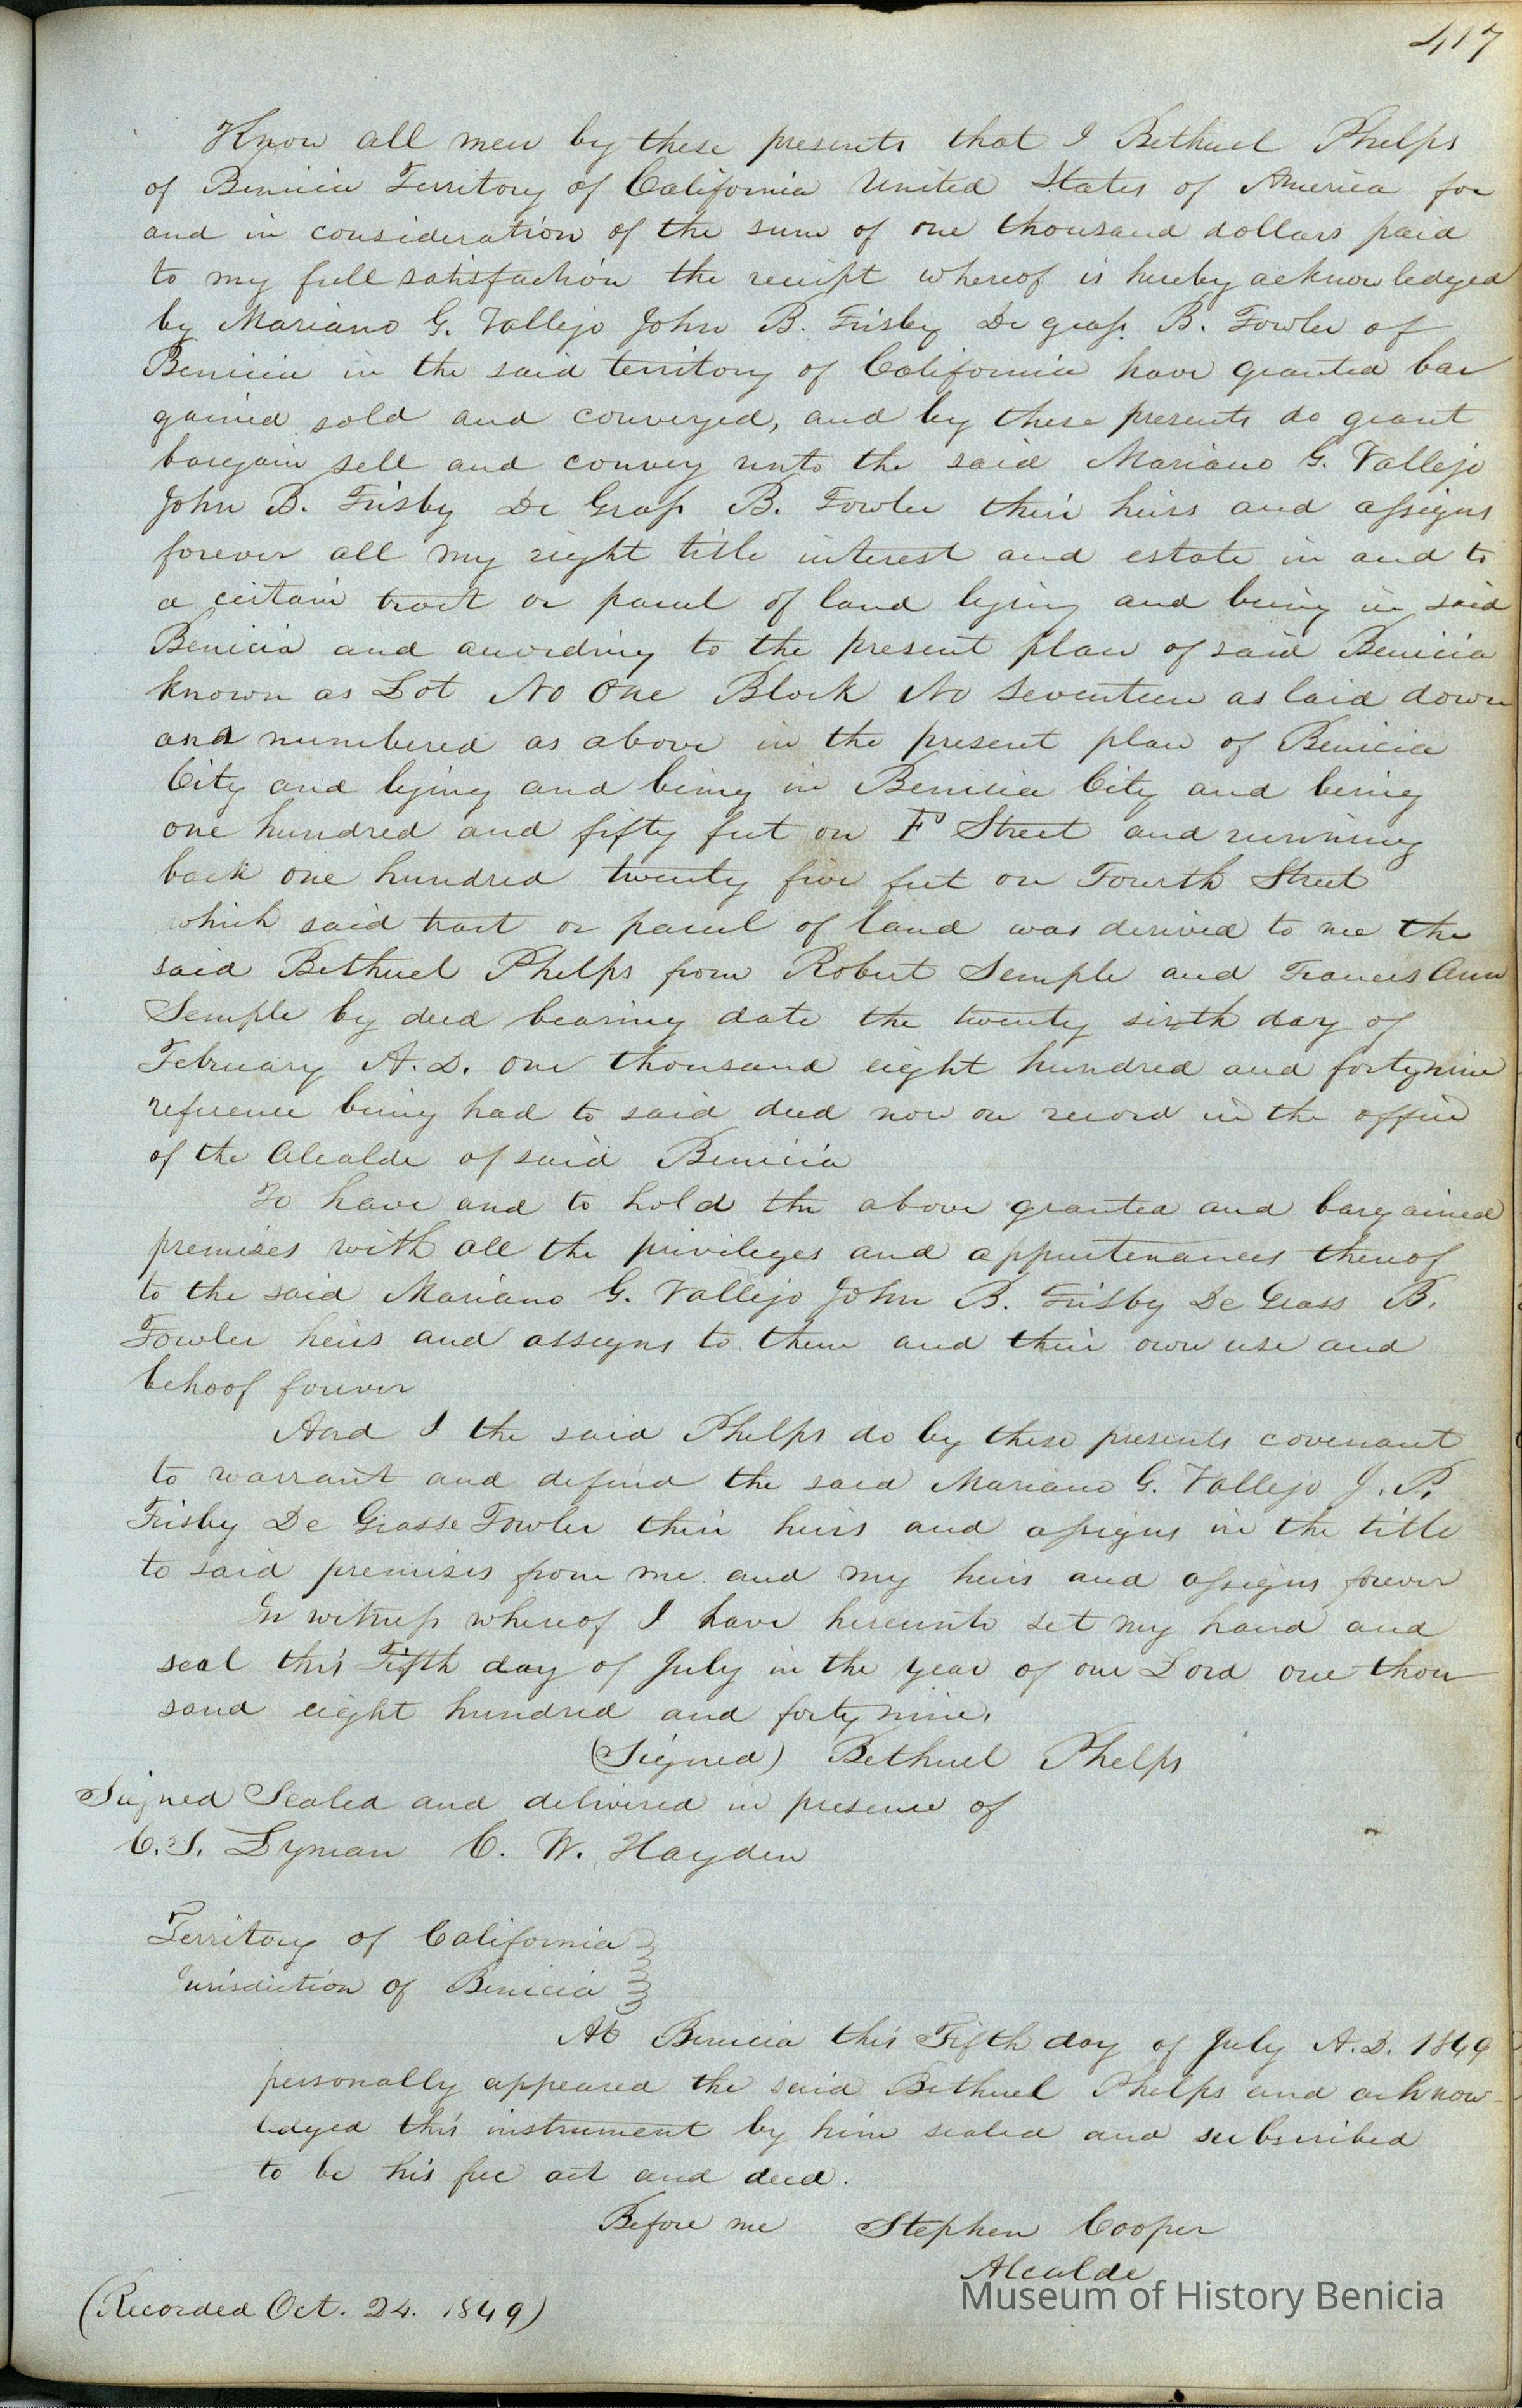 417
Know all men by these presents that I Bethuel Phelps
of Benicia Territory of California United States of America for
and in consideration of the sum of one thousand dollars paid
to my full satisfaction the receipt whereof is hereby acknowledged
by Mariano G. Vallejo John B. Frisby De grass B. Fowler of
Benicia in the said territory of California have granted bar
gained sold and conveyed, and by these presents do grant
bargain sell and convey unto the said Mariano G. Vallejo
John B. Frisby De Grass B. Fowler their heirs and assigns
forever all my right title interest and estate in and to
a certain tract or parcel of land lying and being in said
Benicia and according to the present plan of said Benicia
known as Lot No One Block No Seventeen as laid down
and numbered as above in the present plan of Benicia
City and lying and being in Benicia City and being
one hundred and fifty feet on F Street and running
back one hundred twenty five feet on Fourth Street
which said tract or parcel of land was derived to me the
said Bethuel Phelps from Robert Semple and Frances Ann
Semple by deed bearing date the twenty sixth day of
February A.D. one thousand eight hundred and forty nine
reference being had to said deed now on record in the office
of the Alcalde of said Benicia
To have and to hold the above granted and bargained
premises with all the privileges and appurtenances thereof
to the said Mariano G. Vallejo John B. Frisby De Grass B.
Fowler heirs and assigns to them and their own use and
behoof forever
And I the said Phelps do by these presents covenant
to warrant and defend the said Mariano G. Vallejo J. P.
Frisby De Grasse Fowler their heirs and assigns in the title
to said premises from me and my heirs and assigns forever
In witness whereof I have hereunto set my hand and
seal this Fifth day of July in the year of our Lord one thou
sand eight hundred and forty nine.
(Signed) Bethuel Phelps
Signed Sealed and delivered in presence of
C. S. Lyman C. W. Hayden
Territory of California
Jurisdiction of Benicia
At Benicia this Fifth day of July A.D. 1849
personally appeared the said Bethuel Phelps and acknow-
ledged this instrument by him sealed and subscribed
to be his free act and deed.
Before me Stephen Cooper
Alcalde
(Recorded Oct. 24. 1849)
Museum of History Benicia